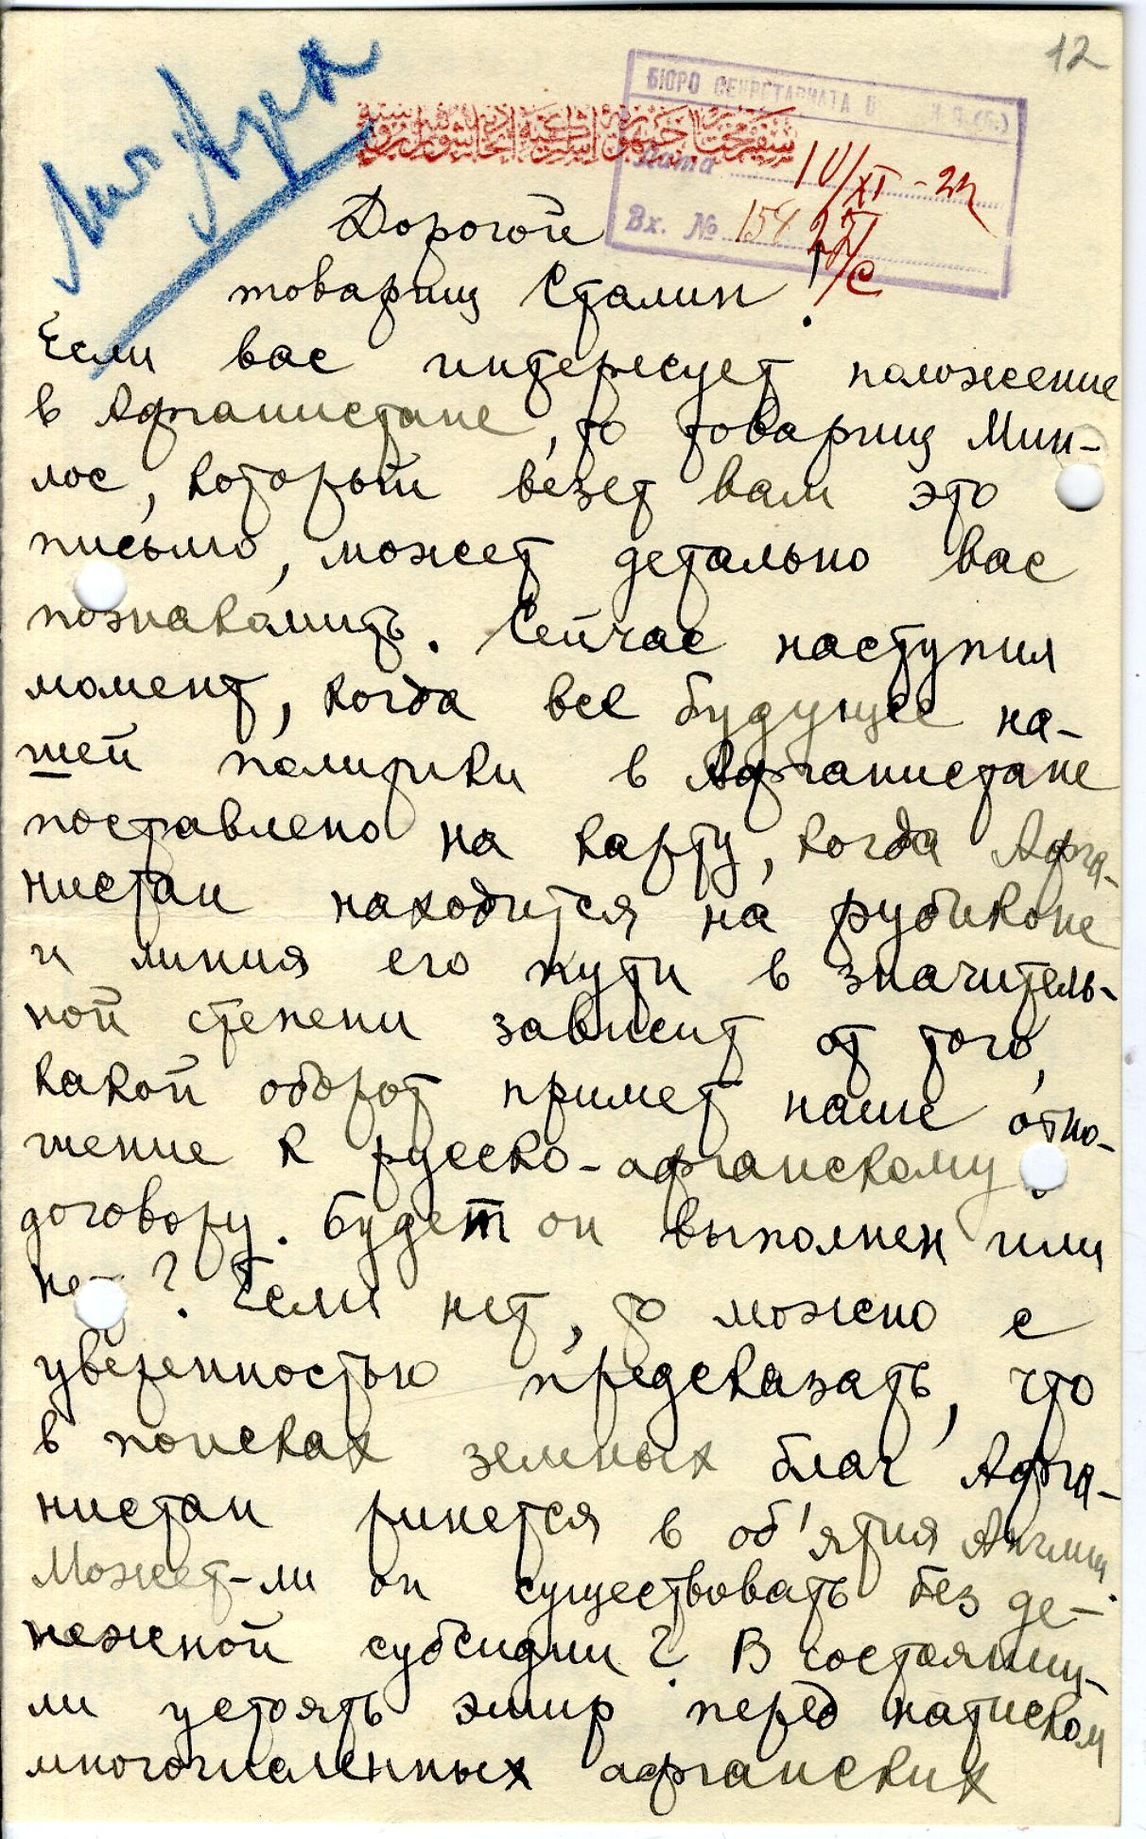 12
Лич Арх
БЮРО СЕКРЕТАРИАТА Ц. К.П.(б.)
Дата 10/XI-22
Вх. № 15427/с
Дорогой
товарищ Сталин!
Если вас интересует положение
в Афганистане, то товарищ Мин-
лос, который везет вам это
письмо, может детально вас
познакомить. Сейчас наступил
момент, когда все будущее на-
шей политики в Афганистане
поставлено на карту, когда Афга-
нистан находится на рубиконе
и линия его пути в значитель-
ной степени зависит от того,
какой оборот примет наше отно-
шение к русско-афганскому
договору. Будет он выполнен или
не ? Если нет, то можно с
уверенностью предсказать, что
в поисках земных благ Афга-
нистан ринется в об'ятия Англии.
Может-ли он существовать без де-
нежной субсидии? В состоянии-
ли устоять эмир перед натиском
многочисленных афганских